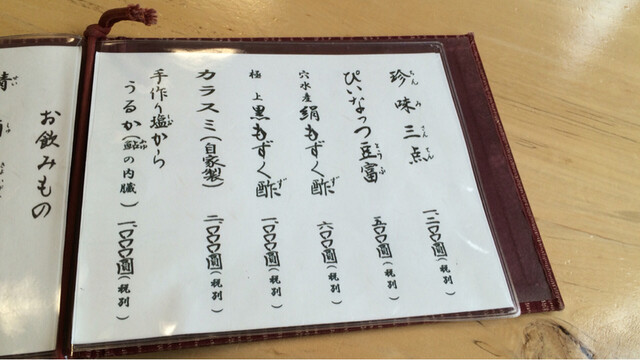 珍味三点 一、二〇〇圓(税別)
ぴいなっつ豆富 五〇〇圓(税別)
穴水産 絹もずく酢 六〇〇圓(税別)
極上 黒もずく酢 一、〇〇〇圓(税別)
カラスミ(自家製) 二、〇〇〇圓(税別)
手作り塩から
うるか(鮎の内臓) 一、〇〇〇圓(税別)
お飲みもの